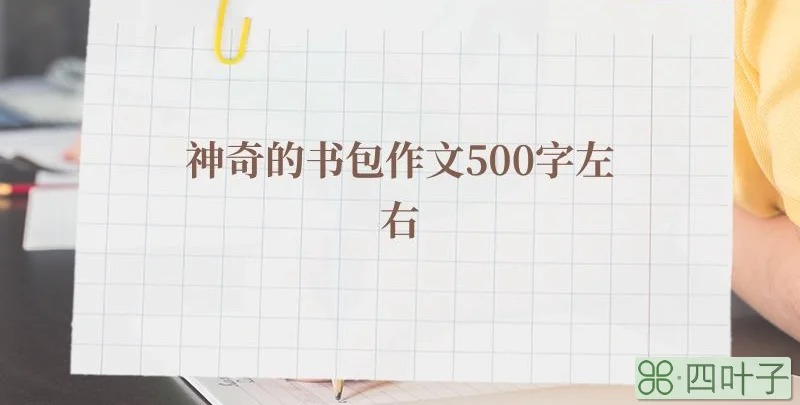 神奇的书包作文500字左
右
四叶子